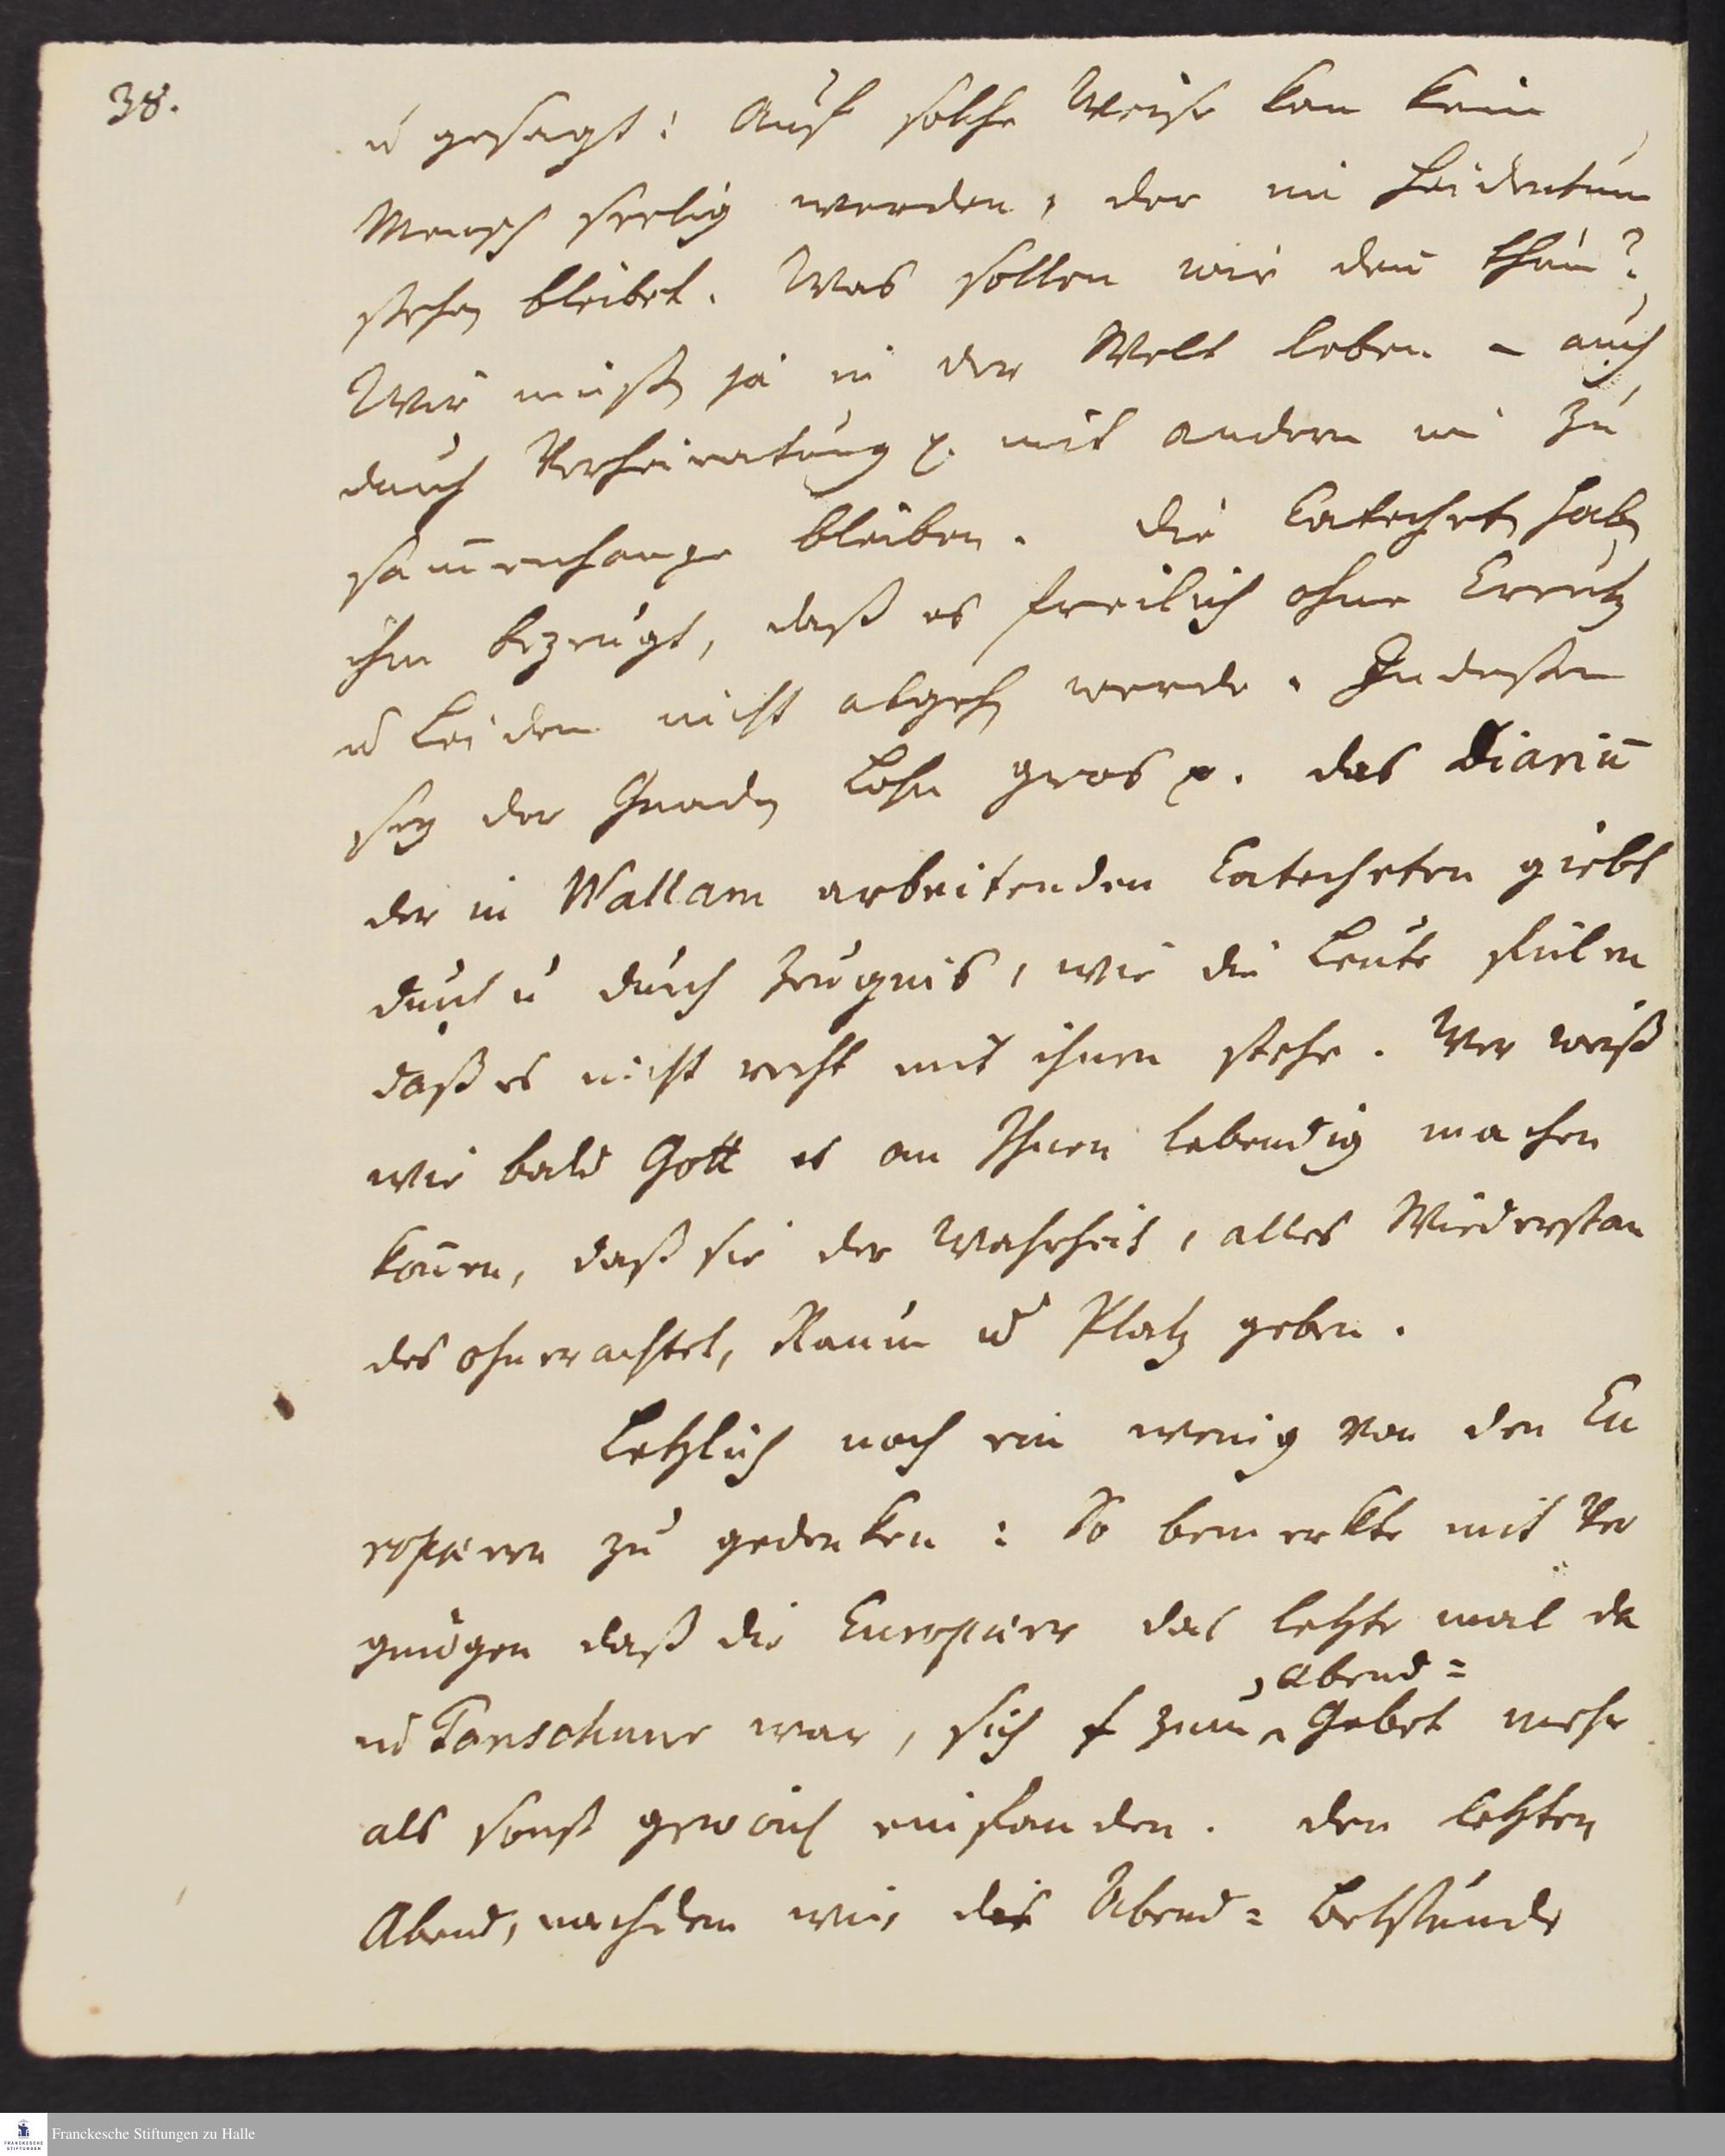 38.
u gesagt: Auf solche Weise kan kein
Mensch seelig werden, der im Heidentum
stehen bleibet. Was sollen wir den thun?
Wir müßen ja in der Welt leben – auch
durch Verheiratung p. mit andern im Zu
sam̄enhange bleiben. Die Catecheten haben
ihm bezeugt, daß es freilich ohne Creutz
u Leiden nicht abgehen werde. Indeßen
sey der Gnaden Lohn gros p. das Diariū
der in Wallam arbeitenden Catecheten giebt
durch u durch Zeugnis, wie die Leute fülen
daß es nicht recht mit ihnen stehe. Wer weiß
wie bald Gott es an Ihnen lebendig machen
kön̄en, daß sie der Wahrheit, alles Wiederstan
des ohnerachtet, Raum u Platz geben.
Letzlich noch ein wenig von den Eu
ropäern zu gedenken: So bemerkte mit Ver
gnügen daß die Europäer das letzte mal da
in Tanschaur war, sich zum Abend=
Gebet mehr
als sonst gewönl einfanden. den letzten
Abend, nachdem wir die Abend= Betstunde
Franckesche Stiftungen zu Halle